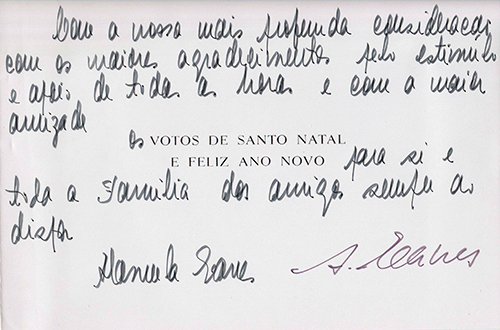 Com a nossa mais profunda consideração
com os maiores agradecimentos pelo estímulo
e apoio de todas as horas e com a maior
amizade
os VOTOS DE SANTO NATAL
E FELIZ ANO NOVO para si e
toda a Família dos amigos sempre ao
dispor
Manuela Eanes A. Eanes